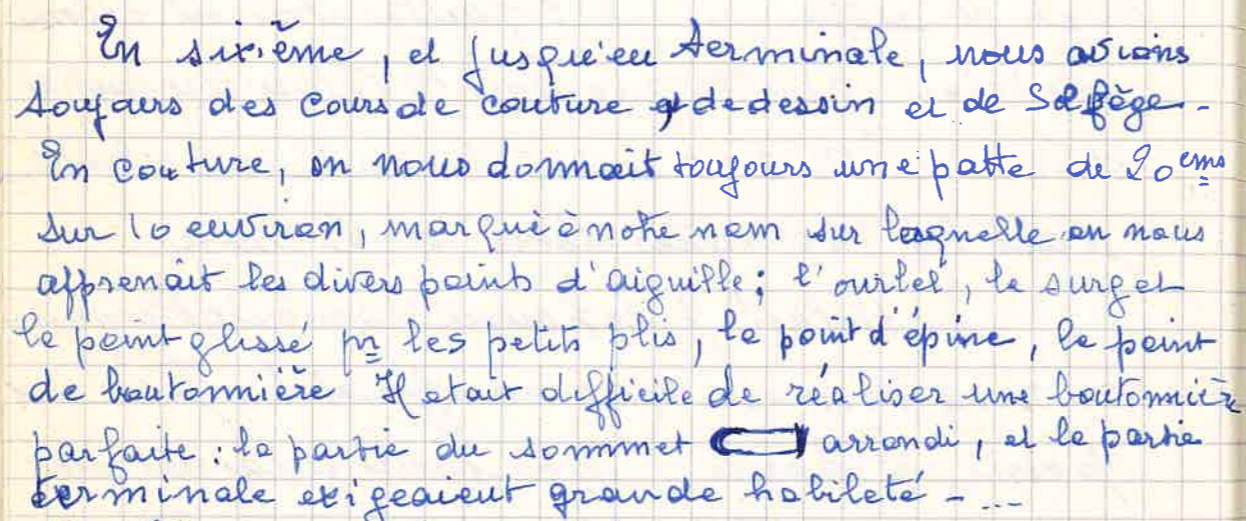 En sixième, et jusqu'en terminale, nous avions
toujours des cours de couture et de dessin et de Solfège -
En couture, on nous donnait toujours une patte de 20 cms
sur 10 environ, marqué à notre nom sur laquelle on nous
apprenait les divers points d'aiguille ; l'ourlet, le surget
le point glissé pr les petits plis, le point d'épine, le point
de boutonnière Il etait difficile de réaliser une boutonnière
parfaite : la partie du sommet arrondi, et la partie
terminale exigeaient grande habileté - ...